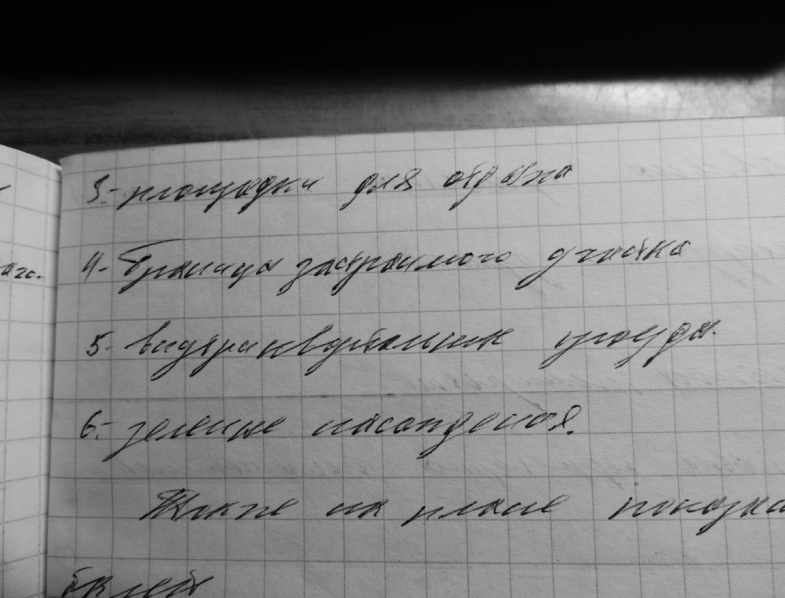 3.- площадки для отдыха
4- Граница застраимого участка
5- внутриквартальния
6- зеленые насаждения.
Также на плане показа